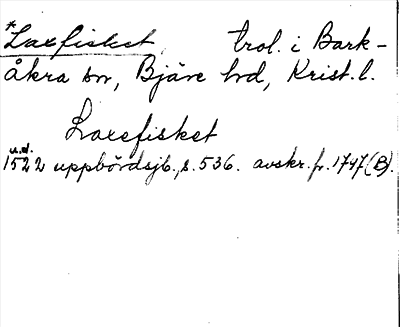 *Laxfisket trol. i Bark-
åkra sn, Bjäre hd, Krist. l.
Laxefisket
u.d.
1522 uppbördsjb. s. 536. avskr. fr. 1747 (B).